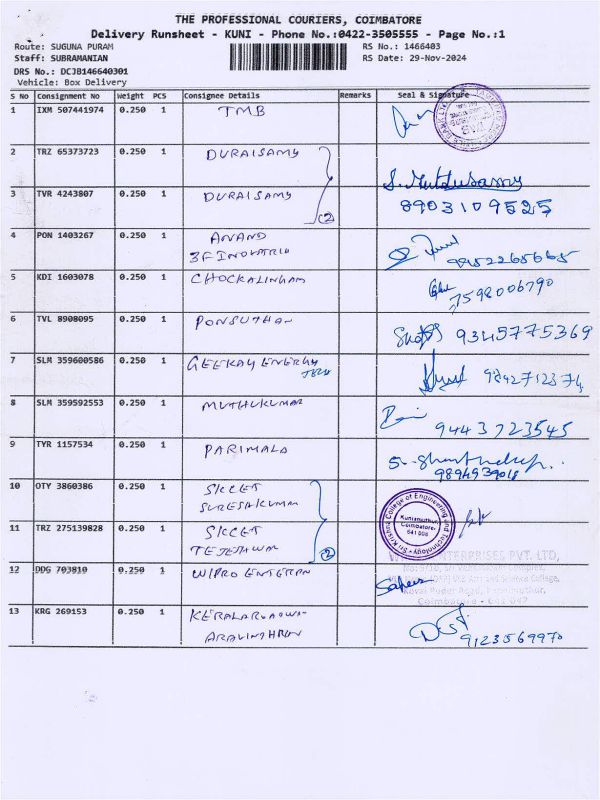 THE PROFESSIONAL COURIERS, COIMBATORE
Delivery Runsheet - KUNI - Phone No.:0422-3505555 - Page No.:1
Route: SUGUNA PURAM
RS No.: 1466403
Staff: SUBRAMANIAN
RS Date: 29-Nov-2024
DRS No.: DCJB146640301
Vehicle: Box Delivery
S No Consignment No Weight PCS Consignee Details Remarks Seal & Signature
1 IXM 507441974 0.250 1 TMB
2 TRZ 65373723 0.250 1 DURAISAMY
S. Muthusamy
3 TVR 4243807 0.250 1 DURAISAMY 8903109525
(2)
4 PON 1403267 0.250 1 ANAND
3F INDUSTRIE
9952265665
5 KDI 1603078 0.250 1 CHOCKALINGAM
7598006790
6 TVL 8908095 0.250 1 PONSUTHAN
9345775369
7 SLM 359600586 0.250 1 GEEKAY ENERGY
9842712374
8 SLM 359592553 0.250 1 MUTHUKUMAR
9443723545
9 TYR 1157534 0.250 1 PARIMALA
9894939018
10 OTY 3860386 0.250 1 SKCET
Sri Krishna College of Engineering and Technology
Kuniamuthur, Coimbatore. 641 008
11 TRZ 275139828 0.250 1 SKCET
(2)
ENTERPRISES PVT. LTD,
12 DDG 703810 0.250 1 WIPRO ENTERPR
Arts and Science College,
Coimbatore - 641 042
13 KRG 269153 0.250 1
9123569970